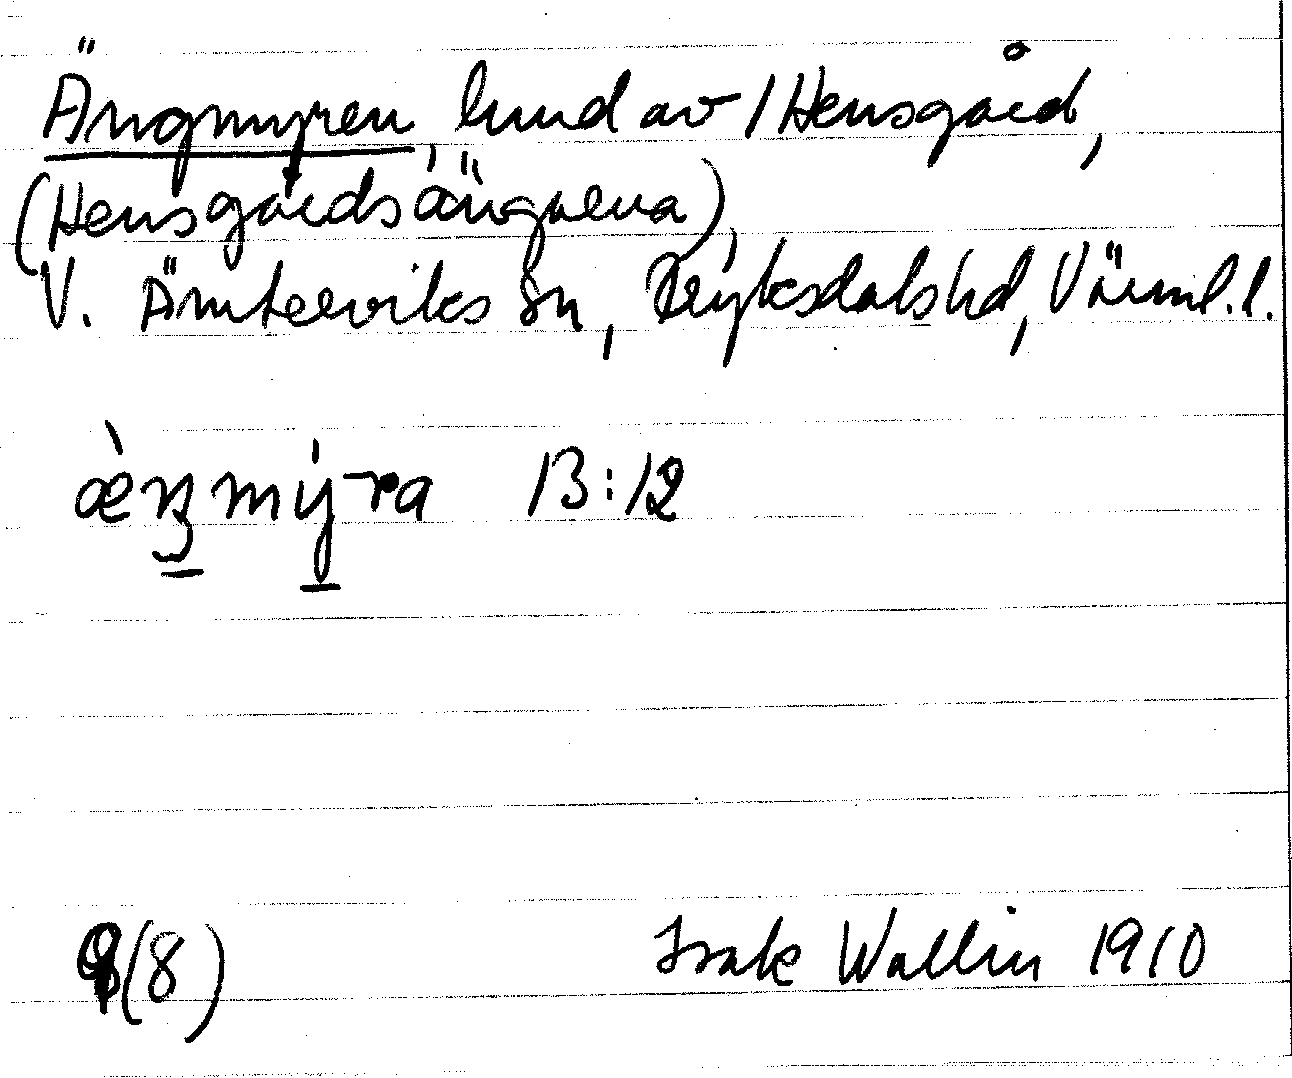 Ängmyren, lund av /Hensgård,
(Hensgårdsängarna),
V. Ämterviks sn, Fryksdals hd, Värml. l.
æ̀ŋmý-ra 13:12
9(8)
Isak Wallin 1910